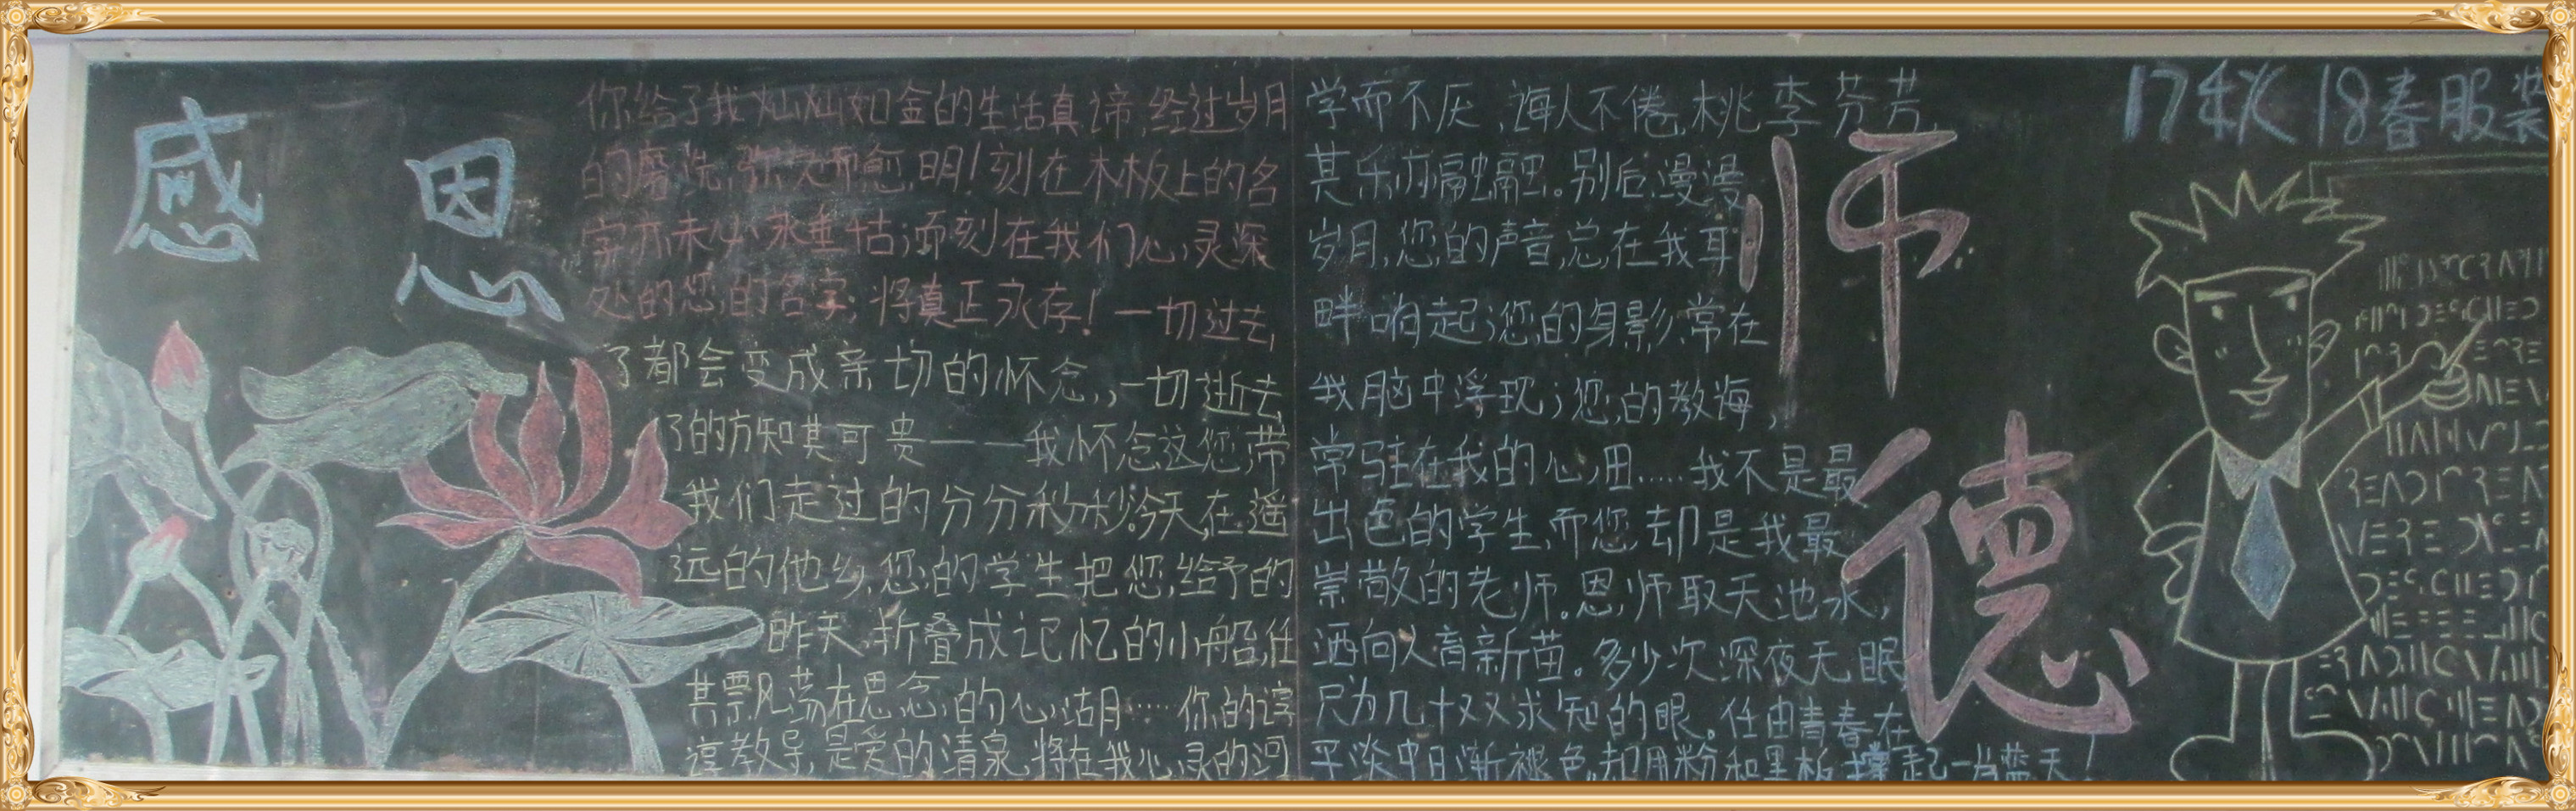 感恩
你给了我灿灿如金的生活真谛,经过岁月
的磨洗,弥久而愈明!刻在木板上的名
字亦未必永垂千古;而刻在我们心灵深
处的您的名字,将真正永存!一切过去
了都会变成亲切的怀念,,一切逝去
了的方知莫可贵——我怀念这您带
我们走过的分分秒秒。今天,在遥
远的他乡,您的学生把您给予的
昨天,折叠成记忆的小船,任
其飘荡在思念的心湖……你的谆
谆教导,是爱的清泉,将在我心灵的河
学而不厌,诲人不倦,桃李芬芳,
其乐亦融融。别后漫漫
岁月,您的声音,总在我耳
畔响起;您的身影,常在
我脑中浮现;您的教海,
常驻在我的心田……我不是最
出色的学生,而您却是我最
崇敬的老师。恩师取天池水,
洒向人育新苗。多少次深夜无眠
只为几十双求知的眼。任由青春在
平淡中日渐褪色,却用粉和黑板撑起一片蓝天!
师德
17秋18春服装